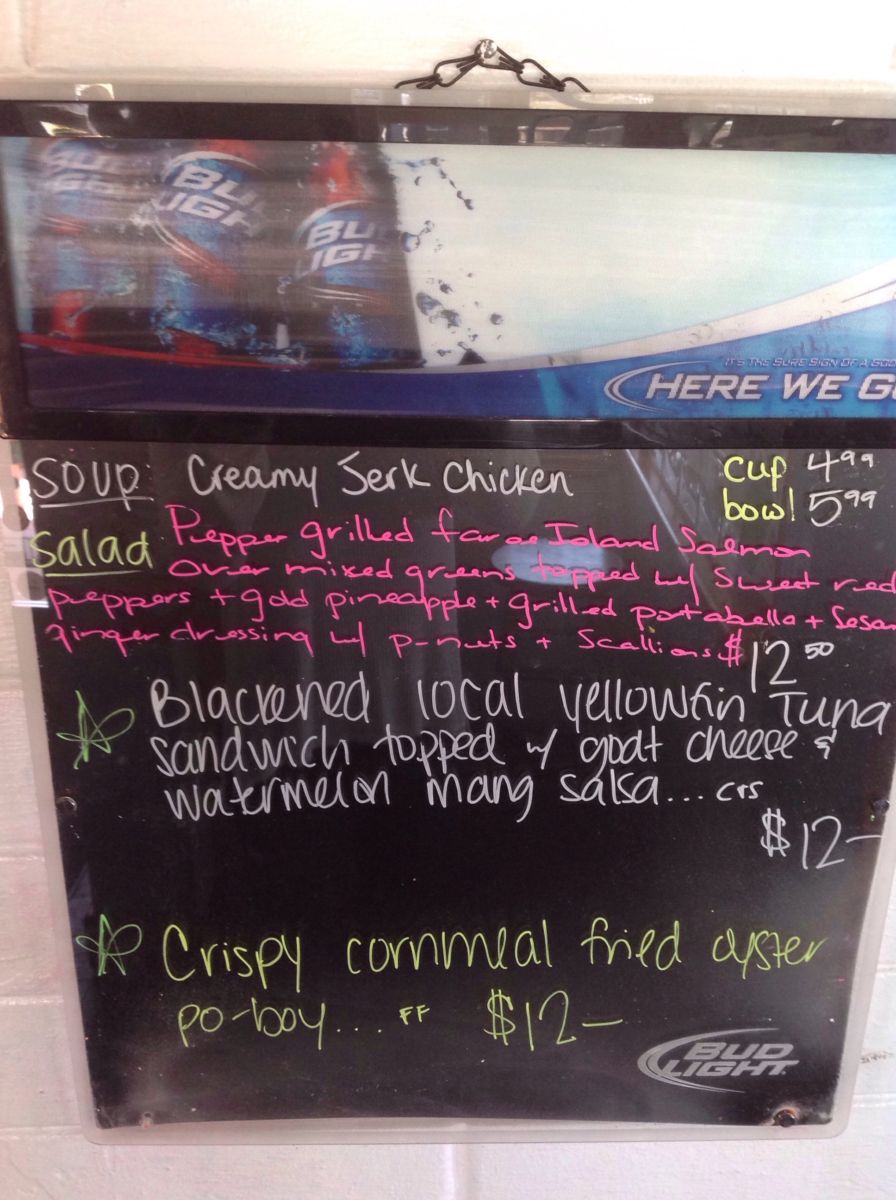 BUD LIGH
BU LIGH
IT'S THE SURE SIGN OF A GOO
HERE WE G
SOUP: Creamy Jerk Chicken
cup 4.99
bowl 5.99
Salad Pepper grilled faroe Island Salmon
over mixed greens topped w/ Sweet red
peppers + gold pineapple + grilled portabella + Sesam
ginger dressing w/ p-nuts + Scallions $12.50
Blackened local yellowfin Tuna
sandwich topped w/ goat cheese &
watermelon mang salsa... crs
$12-
Crispy cornmeal fried oyster
po-boy.... FF $12-
BUD LIGHT